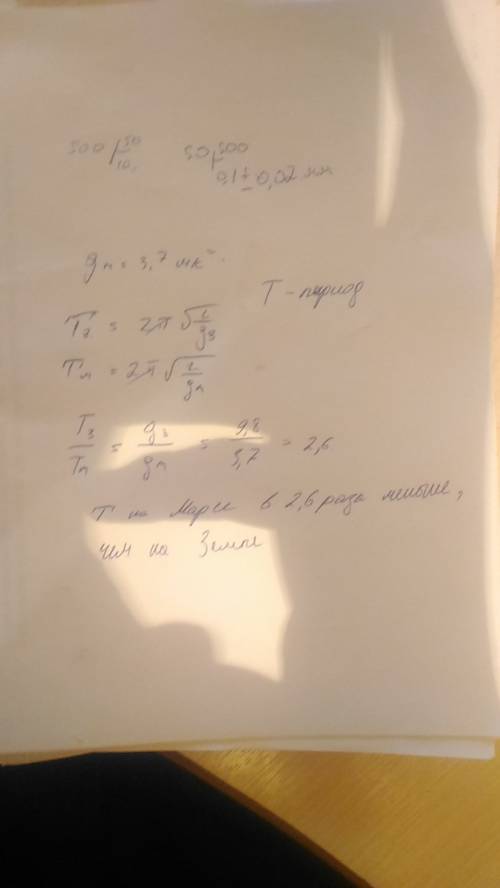 500 50
10
50 500
0,1 ± 0,02 мм
gм = 3,7 м/с².
T - период
Tз = 2π √(l/gз)
Tм = 2π √(l/gм)
Tз/Tм = gз/gм = 9,8/3,7 = 2,6
T на Марсе в 2,6 раза меньше,
чем на Земле